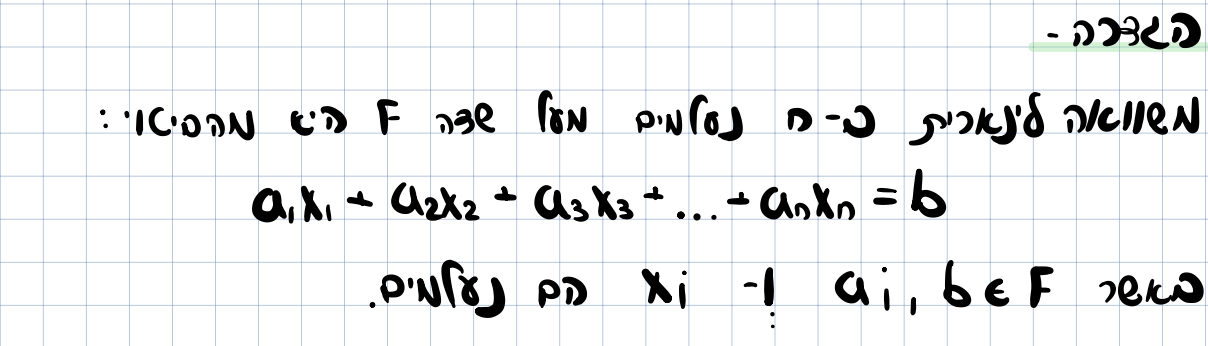 הגדרה -
משוואה לינארית ב-n נעלמים מעל שדה F היא מהביטוי:
a₁x₁ + a₂x₂ + a₃x₃ + ... + aₙxₙ = b
כאשר aᵢ, b ∈ F ו- xᵢ הם נעלמים.